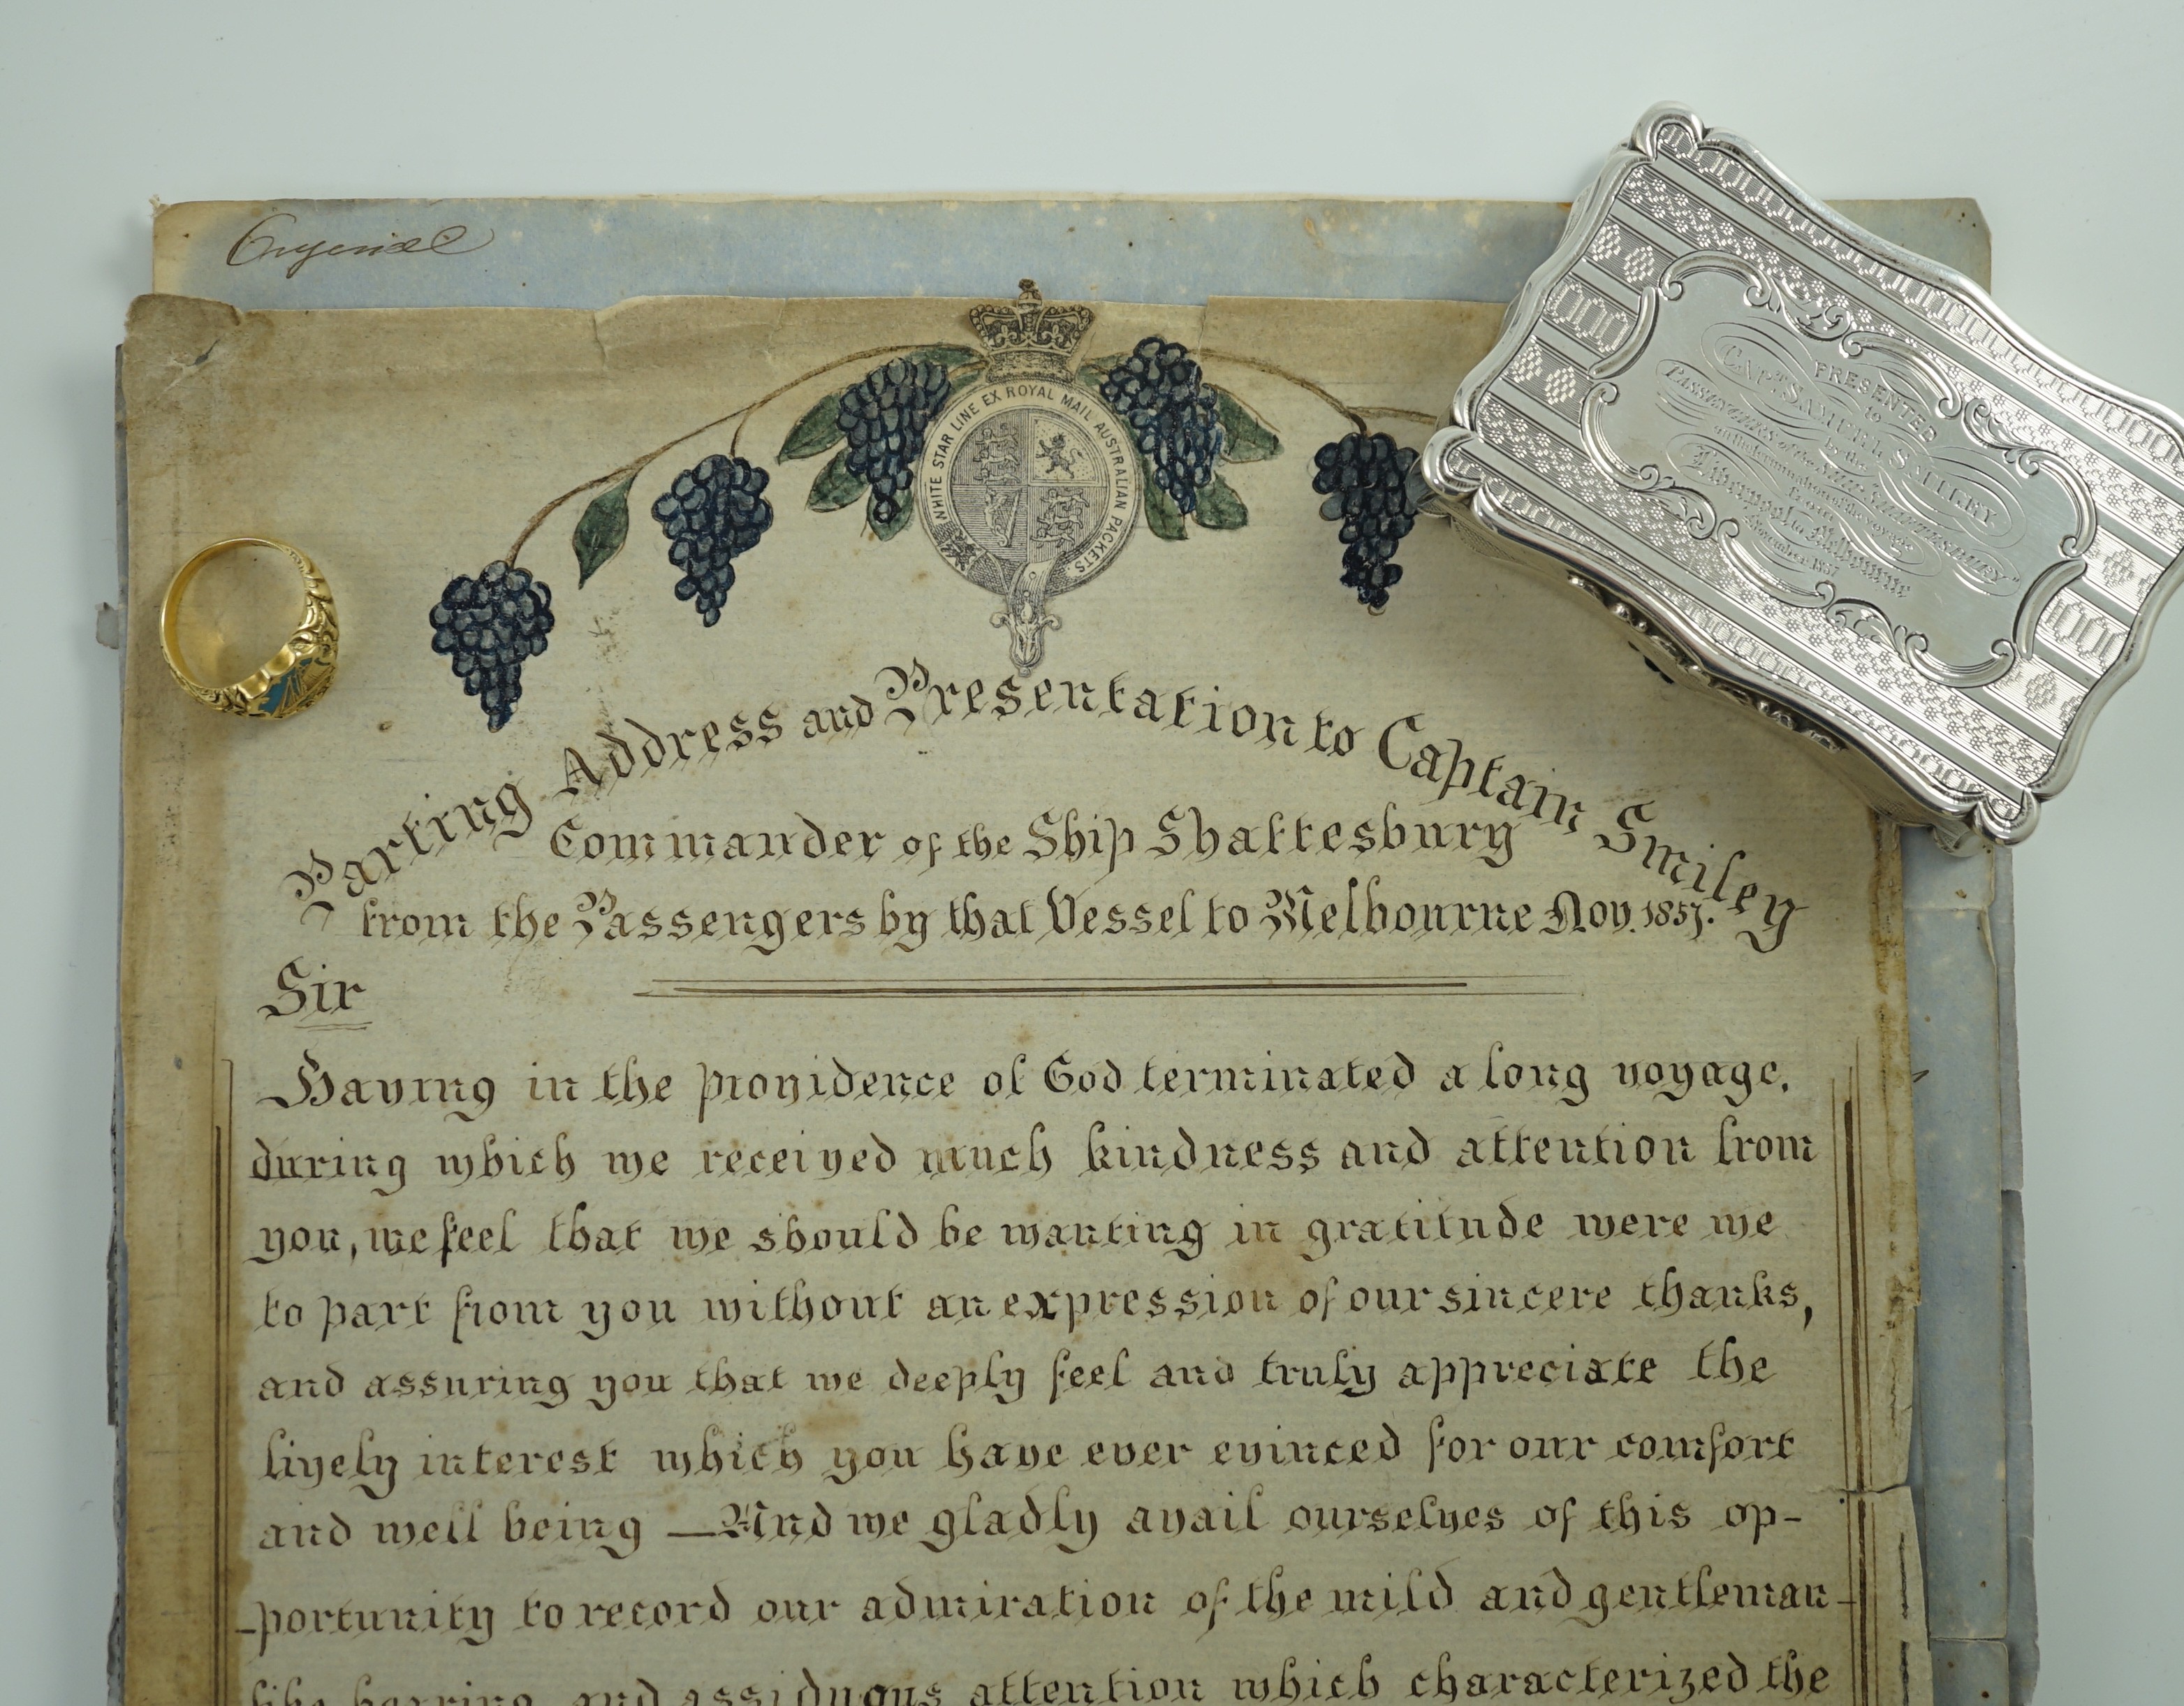 Orygenal
WHITE STAR LINE EX ROYAL MAIL AUSTRALIAN PACKETS.
Parting Address and Presentation to Captain Smiley
Commander of the Ship Shaftesbury
from the Passengers by that Vessel to Melbourne Nov. 1857.
Sir
Having in the providence of God terminated a long voyage,
during which we received much kindness and attention from
you, we feel that we should be wanting in gratitude were we
to part from you without an expression of our sincere thanks,
and assuring you that we deeply feel and truly appreciate the
lively interest which you have ever evinced for our comfort
and well being — And we gladly avail ourselves of this op-
-portunity to record our admiration of the mild and gentleman-
like bearing and assiduous attention which characterized the
PRESENTED
to
CAPT. SAMUEL SMILEY
by the
PASSENGERS of the SHIP "SHAFTESBURY"
on the termination of the voyage
from
Liverpool to Melbourne
November 1857